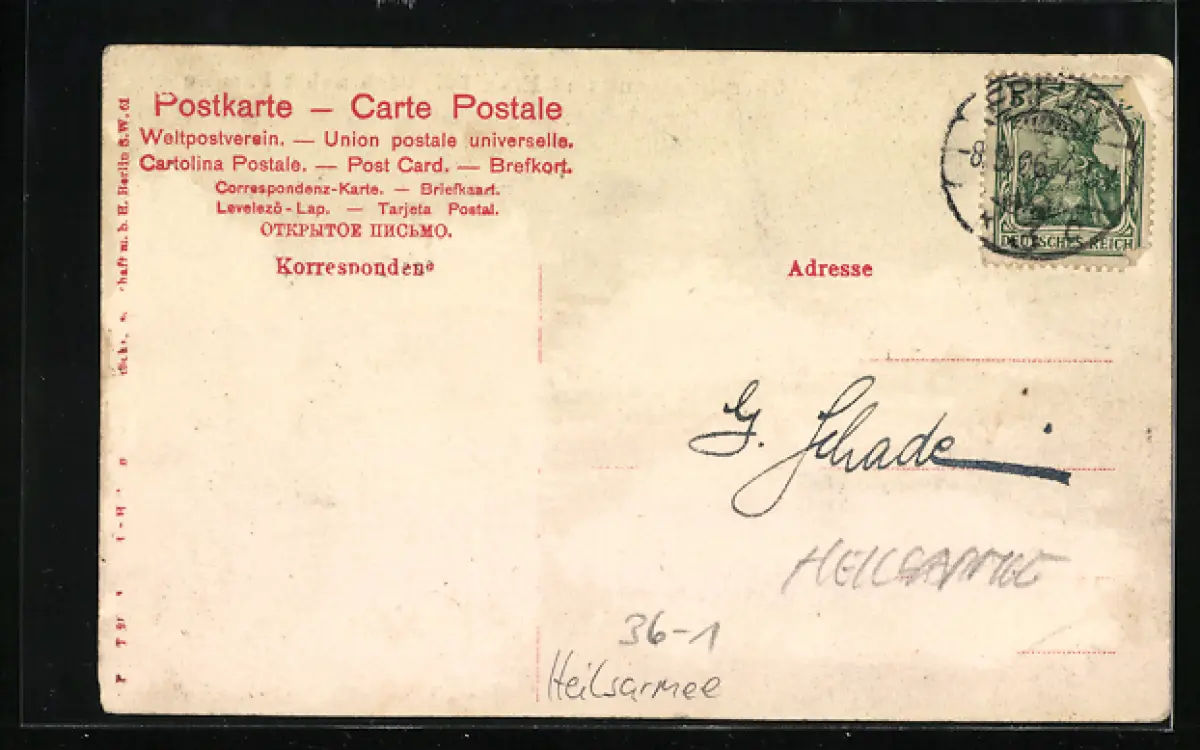 Postkarte — Carte Postale
Weltpostverein. — Union postale universelle.
Cartolina Postale. — Post Card. — Brefkort.
Correspondenz-Karte. — Briefkaart.
Levelező-Lap. — Tarjeta Postal.
ОТКРЫТОЕ ПИСЬМО.
Korrespondenz
Adresse
DEUTSCHES REICH
G. Schade
HEILSARMEE
36-1
Heilsarmee
m. b. H. Berlin S.W. 61